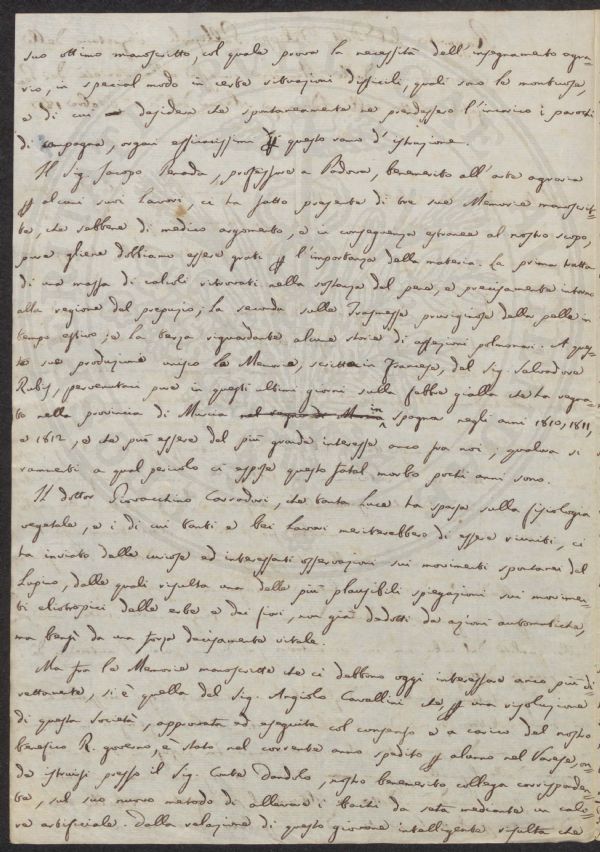 suo ottimo manoscritto, col quale prova la necessità dell'insegnamento agra-
rio, in special modo in certe situazioni difficili, quali sono le montuose,
e di cui desidera che spontaneamente ne prendessero l'incarico i parochi
di campagna, organi efficacissimi per questo ramo d'istruzione.
Il Sig. Jacopo Penada, professore a Padova, benemerito all'arte agraria
per alcuni suoi lavori, ci ha fatto presente di tre sue Memorie manoscrit-
te, che sebbene di medico argomento, e in conseguenza estranee al nostro scopo,
pure gliene dobbiamo essere grati per l'importanza della materia. La prima tratta
di una massa di calcoli ritrovati nella sostanza del pene, e precisamente intorno
alla regione del prepuzio; la seconda sulle pruriginose della pelle in
tempo estivo; e la terza riguardante alcune storie di affezioni polmonari. A que-
ste sue produzioni unisco le Memorie, scritte in Francese, dal Sig. Salvadore
pervenutami pure in questi ultimi giorni sulla febbre gialla che ha regna-
to nella provincia di Murcia nel regno di Murcia in Spagna negli anni 1810, 1811,
e 1812, e che può essere del più grande interesse anco fra noi, qualora si
rammenti a qual pericolo ci espose questo fatal morbo pochi anni sono.
Il dottor Giovacchino Carradori, che tanta luce ha sparsa sulla fisiologia
vegetale, e i di cui tanti e bei lavori meriterebbero di essere riuniti, ci
ha inviato delle curiose ed interessanti osservazioni sui movimenti spontanei del
Lupino, dalle quali risulta una delle più plausibili spiegazioni sui movimen-
ti eliotropici delle erbe e dei fiori, non già dedotti da azioni automatiche,
ma bensì da una forza decisamente vitale.
Ma fra le Memorie manoscritte che ci debbono oggi interessare anco più di-
rettamente, si è quella del Sig. Angiolo Cavallini che per una risoluzione
di questa Società, approvata ed eseguita col consenso e a carico del nostro
benefico R. governo, è stato nel corrente anno spedito per alunno nel Varese, on-
de istruirsi presso il Sig. Conte Dandolo, nostro benemerito collega corrisponden-
te, sul suo nuovo metodo di allevare i bachi da seta mediante il calo-
re artificiale. Dalla relazione di questo giovane intelligente risulta che